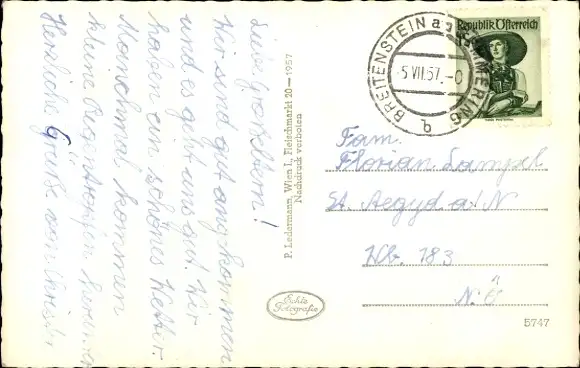 Liebe Großeltern!
Wir sind gut angekommen
und es geht uns gut. Wir
haben ein schönes Wetter.
Manchmal kommen
kleine Regentropfen herunter.
Herzliche Grüße von
P. Ledermann, Wien I., Fleischmarkt 20—1957
Nachdruck verboten
Echte
Fotografie
BREITENSTEIN a. SEMMERING
-5.VII.57.-0
b
Republik Österreich
Fam.
Florian Lampel
St. Aegyd a/N
Hb. 183
N.Ö
5747